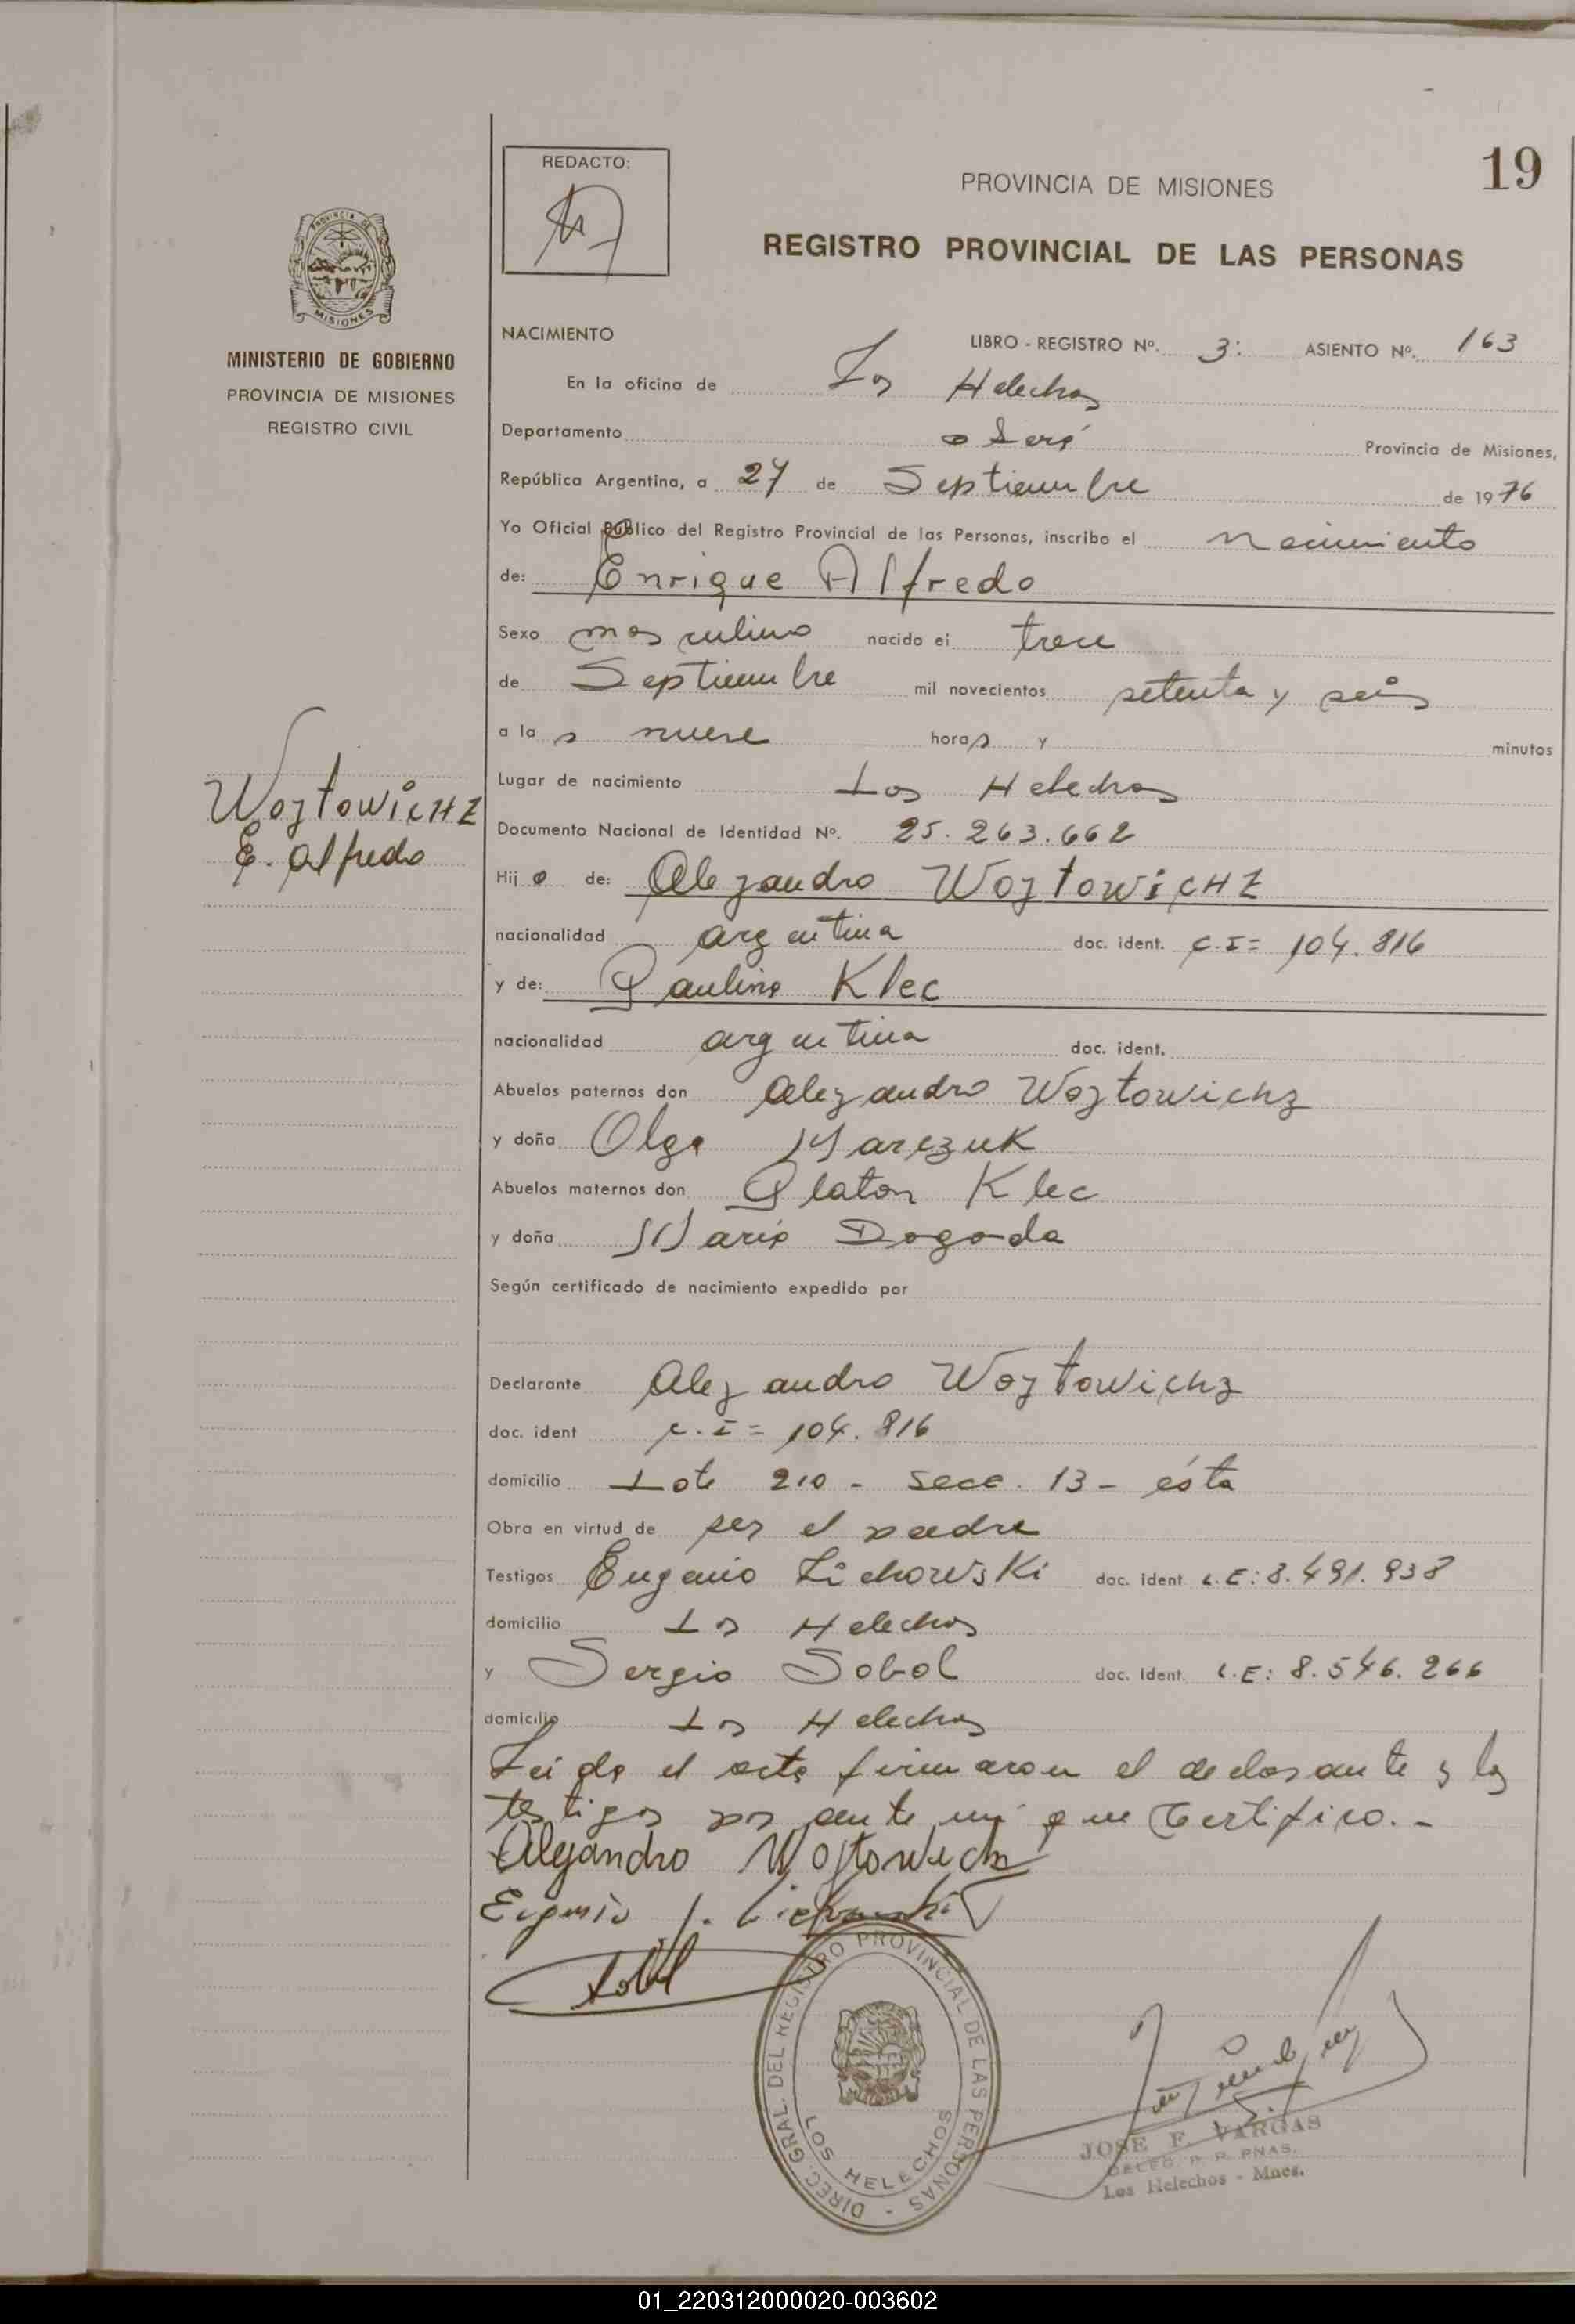 19
REDACTO:
PROVINCIA DE MISIONES
REGISTRO PROVINCIAL DE LAS PERSONAS
PROVINCIA DE
MISIONES
MINISTERIO DE GOBIERNO
PROVINCIA DE MISIONES
REGISTRO CIVIL
NACIMIENTO LIBRO - REGISTRO Nº. 3: ASIENTO Nº. 163
En la oficina de Los Helechos
Departamento Oberá Provincia de Misiones,
República Argentina, a 27 de Septiembre de 1976
Yo Oficial Público del Registro Provincial de las Personas, inscribo el nacimiento
de: Enrique Alfredo
Sexo masculino nacido el trece
de Septiembre mil novecientos setenta y seis
a la s nueve horas y minutos
Lugar de nacimiento Los Helechos
Wojtowichz
E. Alfredo
Documento Nacional de Identidad Nº. 25.263.662
Hij o de: Alejandro WojtowicHZ
nacionalidad argentina doc. ident. C.I= 104.816
y de: Paulina Klec
nacionalidad argentina doc. ident.
Abuelos paternos don Alejandro Wojtowichz
y doña Olga Marczuk
Abuelos maternos don Platon Klec
y doña Maria Dogoda
Según certificado de nacimiento expedido por
Declarante Alejandro Wojtowichz
doc. ident C.I= 104.816
domicilio Lote 210 - Secc. 13 - ésta
Obra en virtud de ser el padre
Testigos Eugenio Lichowski doc. ident L.E: 8.491.938
domicilio Los Helechos
y Sergio Sobol doc. Ident. L.E: 8.546.266
domicilio Los Helechos
Leida el acta firmaron el declarante y los
testigos por ante mi que Certifico.-
Alejandro Wojtowich
Eugenio
DIREC. GRAL. DEL REGISTRO PROVINCIAL DE LAS PERSONAS -
LOS HELECHOS
JOSE F. VARGAS
DELEG. R. P. PNAS.
Los Helechos - Mnes.
01_220312000020-003602